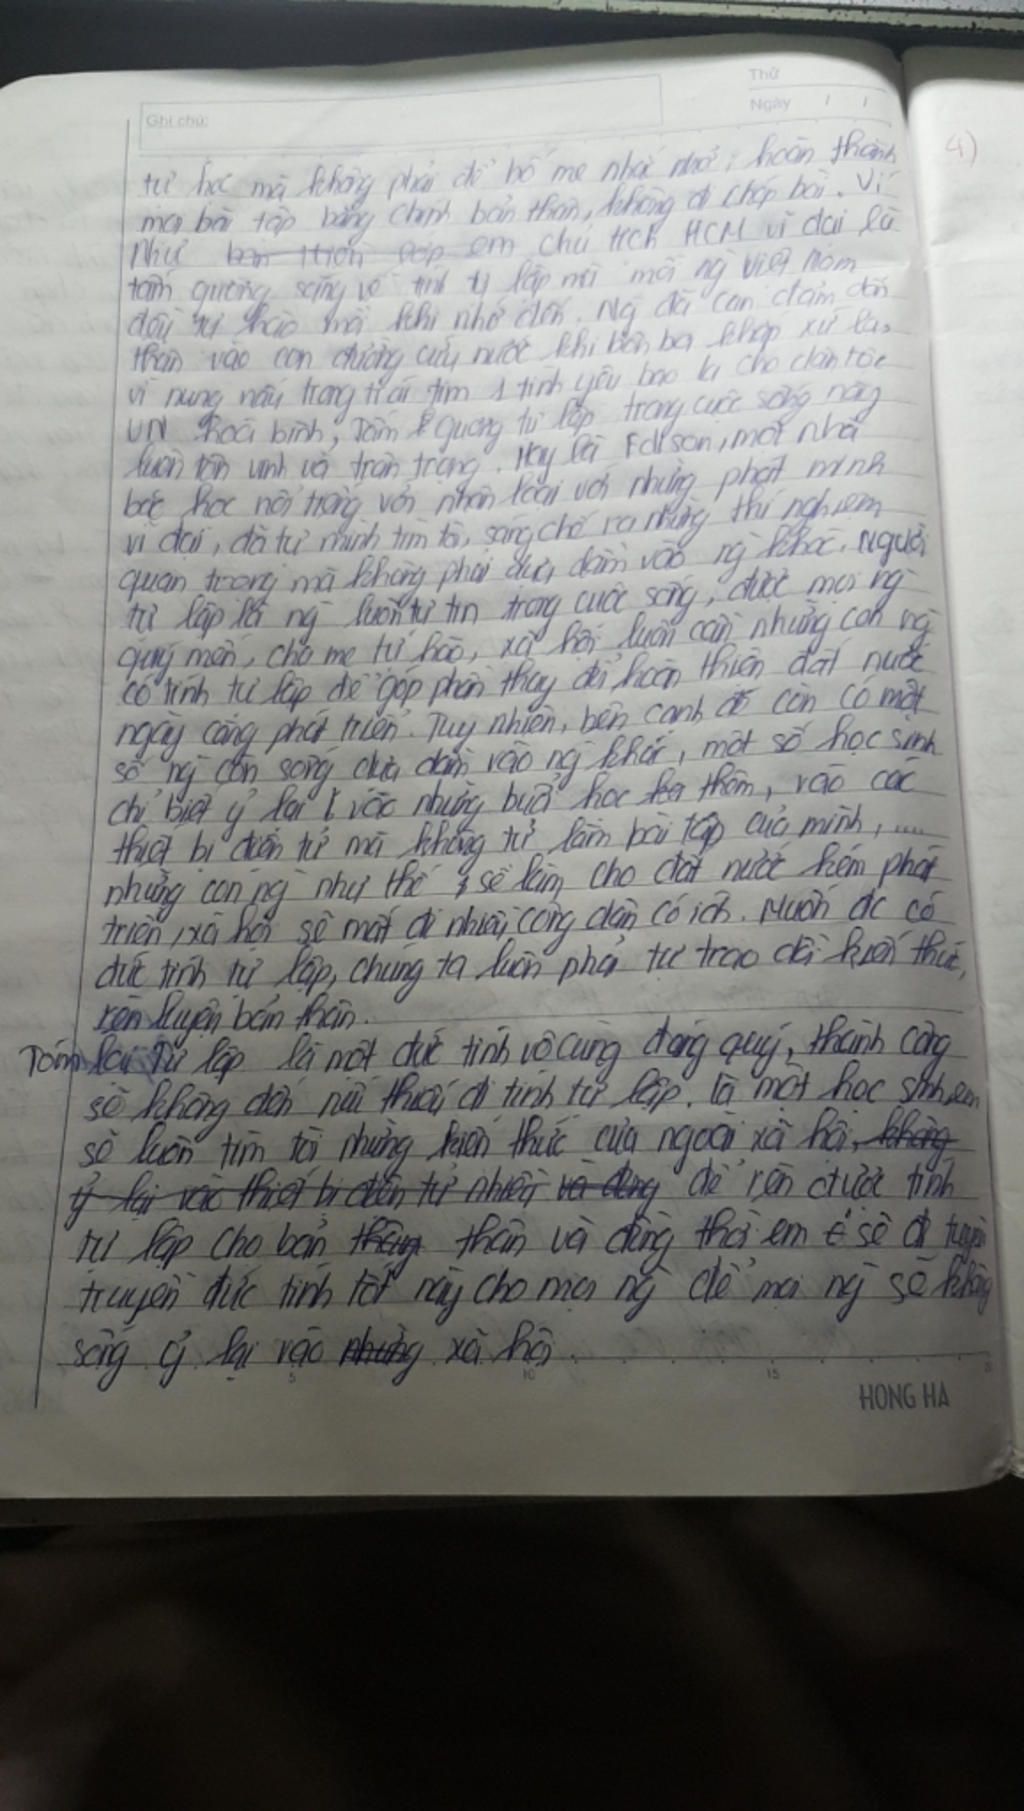 Thứ
Ghi chú:
Ngày / /
4)
tự học mà không phải để bố mẹ nhắc nhở; hoàn thành
mọi bài tập bằng chính bản thân, không đi chép bài. Ví
như bạn thân lớp em chủ tịch HCM vĩ đại là
tấm gương sáng về tính tự lập mà mỗi ng Việt Nam
đầy tự hào mỗi khi nhớ đến. Ng đã can đảm dấn
thân vào con đường cứu nước khi bôn ba khắp xứ lạ,
vì nung nấu trong trái tim 1 tình yêu bao la cho dân tộc
VN hoà bình, Tấm gương tự lập trong cuộc sống này
luôn tôn vinh và trân trọng. Hay là Edison, một nhà
bác học nổi tiếng với nhân loại với những phát minh
vĩ đại, đã tự mình tìm tòi, sáng chế ra những thí nghiệm
quan trọng mà không phải dựa dẫm vào ng khác. Người
tự lập là ng luôn tự tin trong cuộc sống, được mọi ng
quý mến, cha mẹ tự hào, xã hội luôn cần những con ng
có tính tự lập để góp phần thay đổi hoàn thiện đất nước
ngày càng phát triển. Tuy nhiên, bên cạnh đó còn có một
số ng còn sống dựa dẫm vào ng khác, một số học sinh
chỉ biết ỷ lại vào những buổi học thêm, vào các
thiết bị điện tử mà không tự làm bài tập của mình, ....
những con ng như thế sẽ làm cho đất nước kém phát
triển, xã hội sẽ mất đi nhiều công dân có ích. Muốn đc có
đức tính tự lập, chúng ta luôn phải tự trao dồi kiến thức,
rèn luyện bản thân.
Tóm lại Tự lập là một đức tính vô cùng đáng quý, thành công
sẽ không đến nếu thiếu đi tính tự lập. là một học sinh, em
sẽ luôn tìm tòi những kiến thức của ngoài xã hội, không
ỷ lại vào thiết bị điện tử nhiều và dùng để rèn được tính
tự lập cho bản thân và đồng thời em sẽ đi tuyên
truyền đức tính tốt này cho mọi ng để mọi ng sẽ không
sống ỷ lại vào những xã hội.
5 10 15
HONG HA